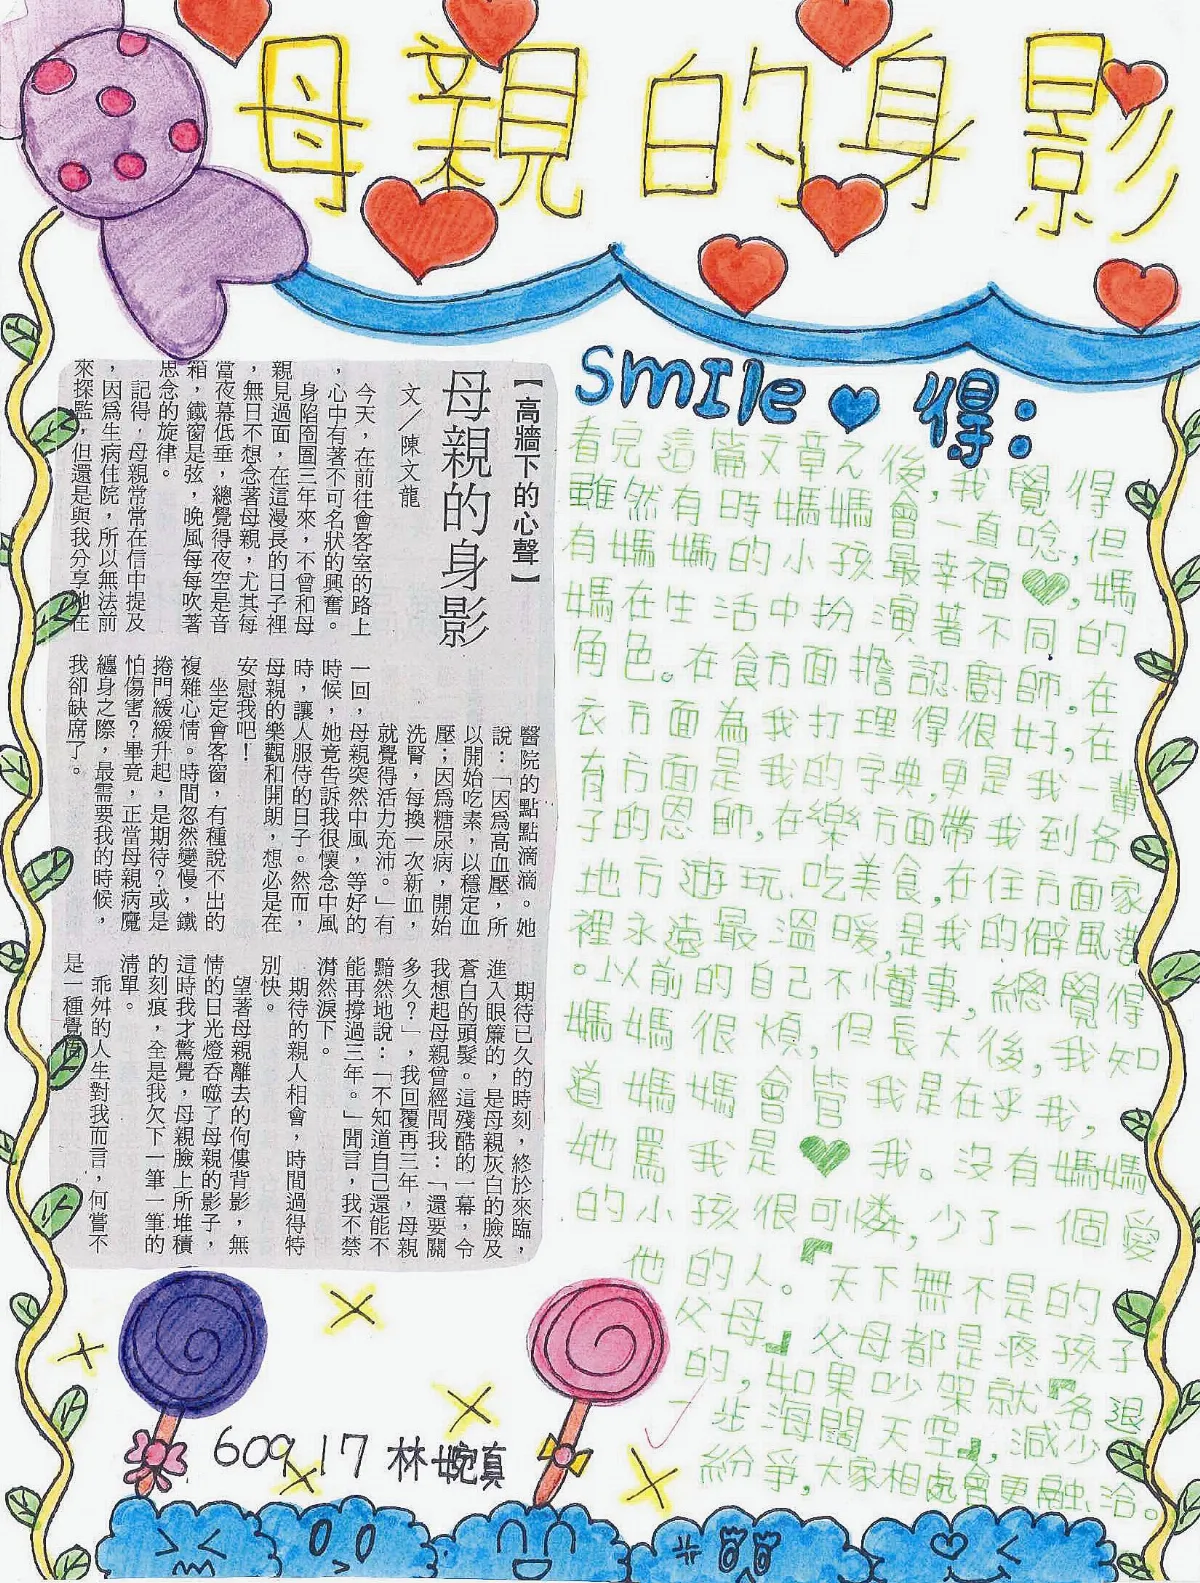 母親的身影
【高牆下的心聲】
母親的身影
文／陳文龍
今天，在前往會客室的路上
，心中有著不可名狀的興奮。
身陷囹圄三年來，不曾和母
親見過面，在這漫長的日子裡
，無日不想念著母親，尤其每
當夜幕低垂，總覺得夜空是音
箱，鐵窗是弦，晚風每每吹著
思念的旋律。
記得，母親常常在信中提及
，因為生病住院，所以無法前
來探監，但還是與我分享她在
醫院的點點滴滴。她
說：「因為高血壓，所
以開始吃素，以穩定血
壓；因為糖尿病，開始
洗腎，每換一次新血，
就覺得活力充沛。」有
一回，母親突然中風，等好的
時候，她竟告訴我很懷念中風
時，讓人服侍的日子。然而，
母親的樂觀和開朗，想必是在
安慰我吧！
坐定會客窗，有種說不出的
複雜心情。時間忽然變慢，鐵
捲門緩緩升起，是期待？或是
怕傷害？畢竟，正當母親病魔
纏身之際，最需要我的時候，
我卻缺席了。
期待已久的時刻，終於來臨，
進入眼簾的，是母親灰白的臉及
蒼白的頭髮。這殘酷的一幕，令
我想起母親曾經問我：「還要關
多久？」，我回覆再三年，母親
黯然地說：「不知道自己還能不
能再撐過三年。」聞言，我不禁
潸然淚下。
期待的親人相會，時間過得特
別快。
望著母親離去的佝僂背影，無
情的日光燈吞噬了母親的影子，
這時我才驚覺，母親臉上所堆積
的刻痕，全是我欠下一筆一筆的
清單。
乖舛的人生對我而言，何嘗不
是一種覺悟
Smile♥得：
看完這篇文章之後，我覺得
雖然有時媽媽會一直唸，但
有媽媽的小孩最幸福♥，媽
媽在生活中扮演著不同的
角色。在食方面擔認廚師，在
衣方面為我打理得很好，在
育方面是我的字典，更是我一輩
子的恩師，在樂方面帶我到各
地方遊玩、吃美食，在住方面家
裡永遠最溫暖，是我的僻風港
。以前的自己不懂事，總覺得
媽媽很煩，但長大後，我知
道媽媽會管我是在乎我，
她罵我是♥我。沒有媽媽
的小孩很可憐，少了一個愛
他的人。『天下無不是的
父母』父母都是疼孩子
的，如果吵架就『各退
一步海闊天空』，減少
紛爭，大家相處會更融洽。
609.17 林婉真